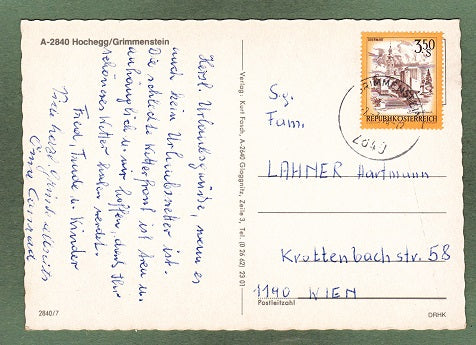 A-2840 Hochegg/Grimmenstein
Herzl. Urlaubsgrüße, wenn es
auch kein Urlaubswetter ist.
Die schlechte Wetterfront ist treu u.
anhänglich u. wir hoffen, daß Ihr
schöneres Wetter haben werdet.
Fred, Traude u. Kinder
Viele herzl. Grüße
Verlag: Kurt Fasch, A-2640 Gloggnitz, Zeile 3, Tel. (0 26 62) 23 01
3.50
S
REPUBLIK ÖSTERREICH
GRIMMENSTEIN
2840
Sg.
Fam.
LAHNER Hartmann
Krottenbachstr. 58
1190 WIEN
Postleitzahl
2840/7
DRHK